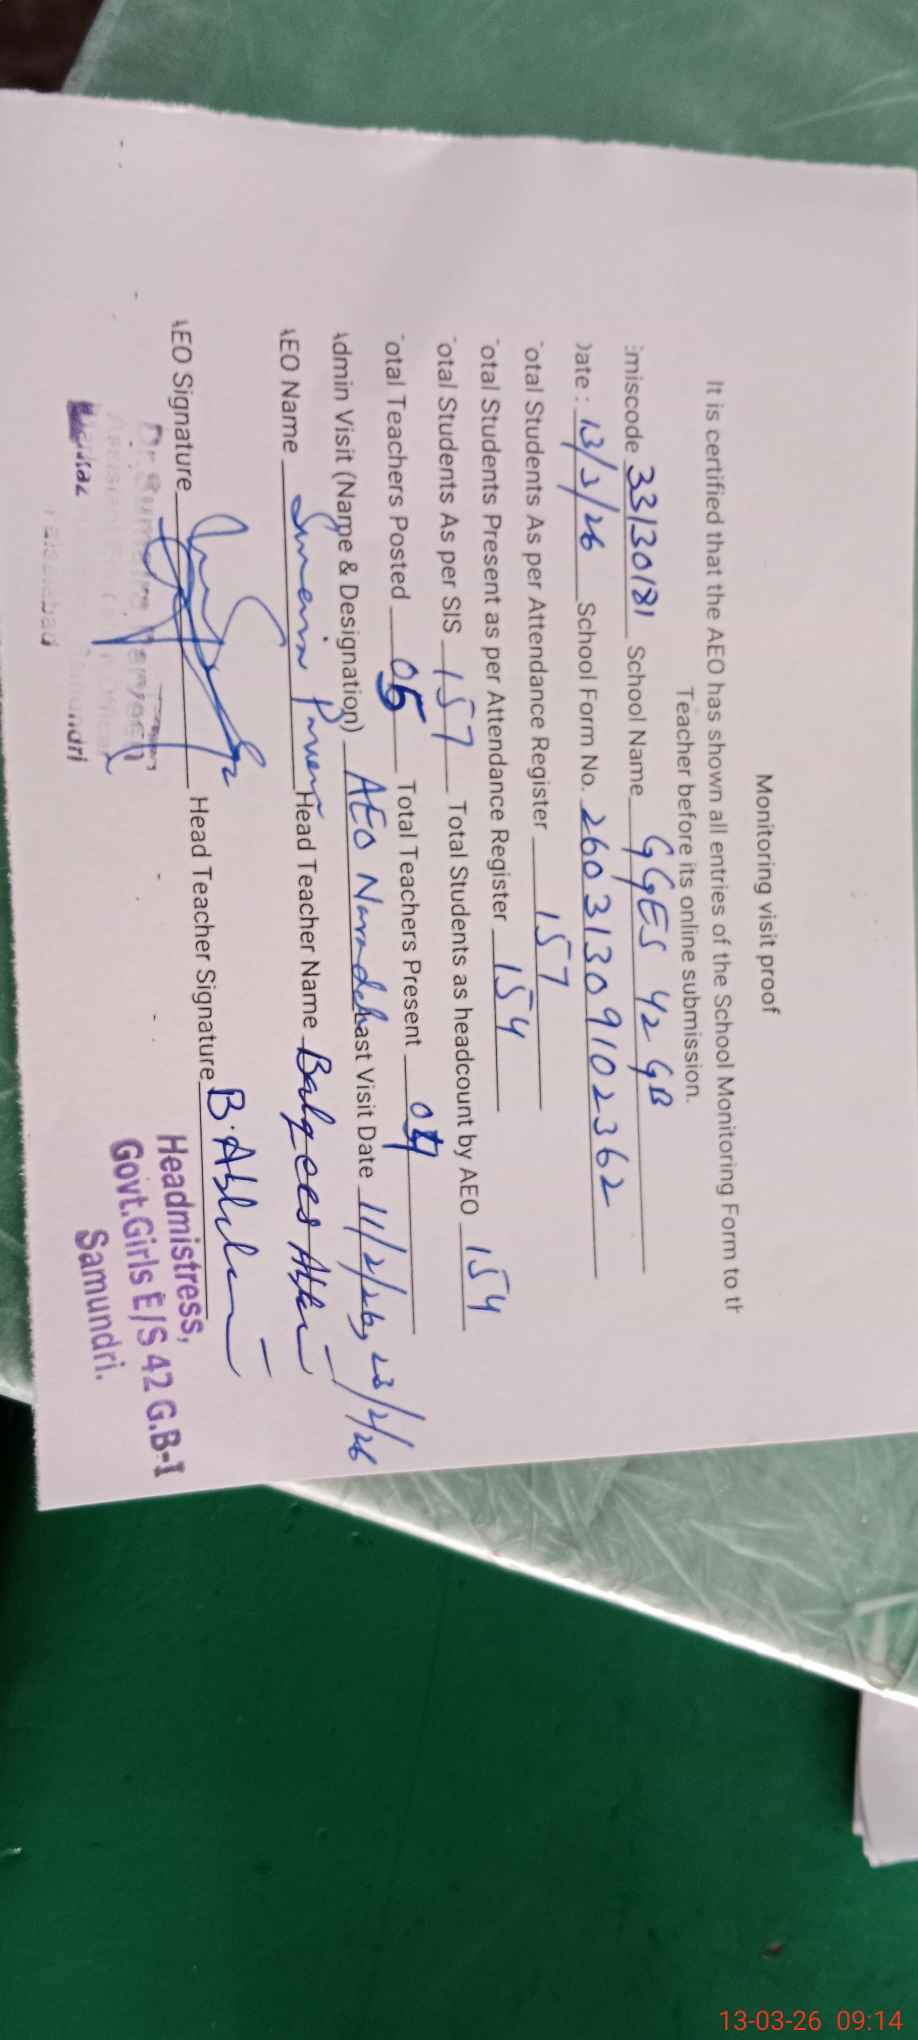 Monitoring visit proof
It is certified that the AEO has shown all entries of the School Monitoring Form to th
Teacher before its online submission.
Emiscode 33130181 School Name GGES 42 GB
Date : 13/3/26 School Form No. 26031309102362
Total Students As per Attendance Register 157
Total Students Present as per Attendance Register 154
Total Students As per SIS 157 Total Students as headcount by AEO 154
Total Teachers Posted 05 Total Teachers Present 04
Admin Visit (Name & Designation) AEO Last Visit Date 11/2/26, 23/2/26
AEO Name Sumaira Parveen Head Teacher Name Balqees Akhtar
AEO Signature Head Teacher Signature B.
Headmistress,
Govt.Girls E/S 42 G.B-I
Samundri.
13-03-26 09:14